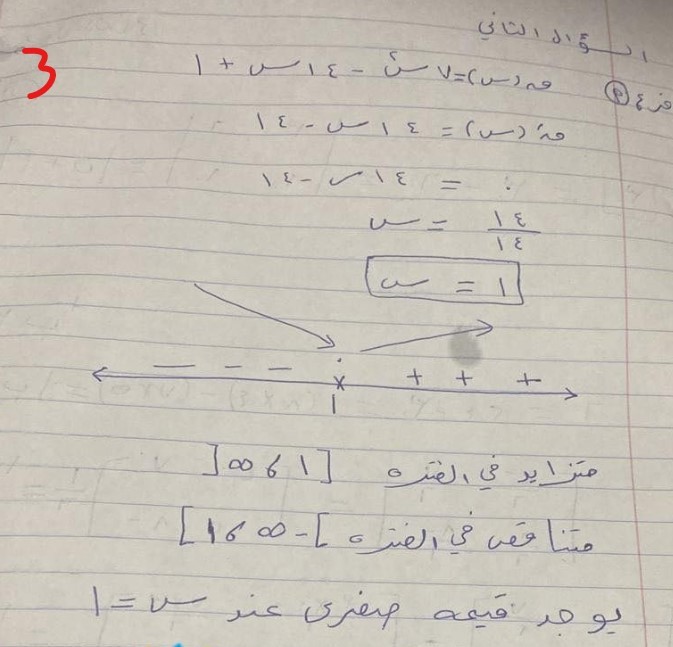 السؤال الثاني
3
فرع (P) ق(س) = ٧س٢ - ١٤س + ١
قَ(س) = ١٤س - ١٤
٠ = ١٤س - ١٤
١٤/١٤ = س
س = ١
— — — + + +
١
متزايد في الفترة [١ ، ∞[
متناقص في الفترة ]-∞ ، ١]
يوجد قيمه صغرى عند س = ١